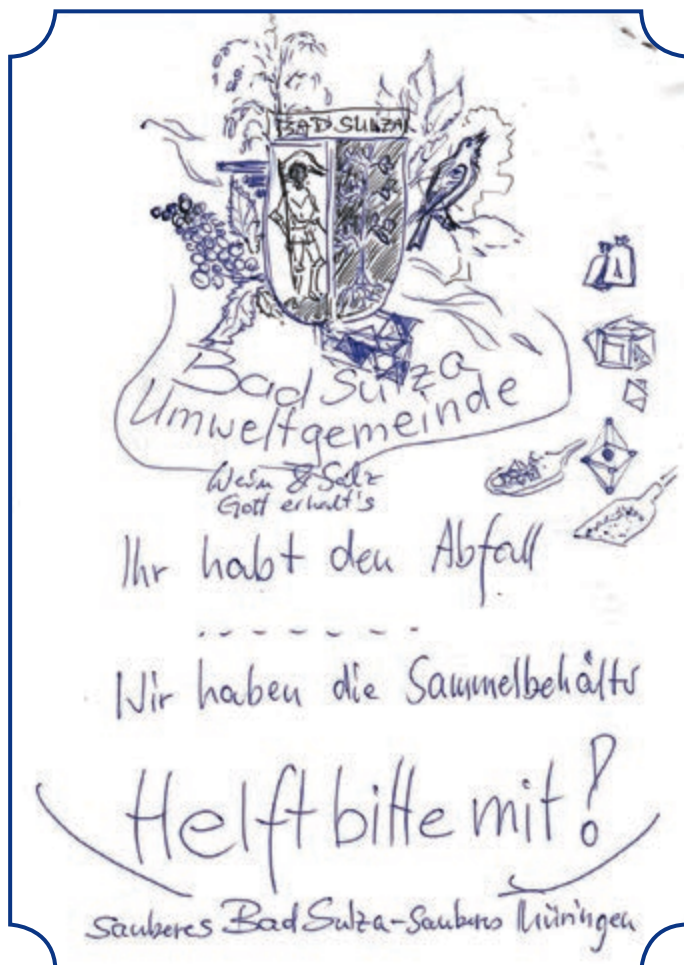 BAD SULZA
Bad Sulza
Umweltgemeinde
Wein & Salz
Gott erhalt's
Ihr habt den Abfall
Wir haben die Sammelbehälter
Helft bitte mit!
Sauberes Bad Sulza - Sauberes Thüringen